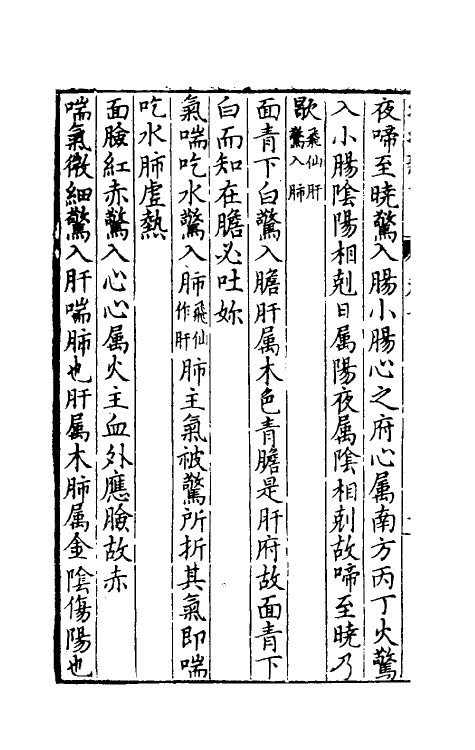 夜啼至曉驚入腸小腸心之府心属南方丙丁火驚
入小腸陰陽相剋日属陽夜属陰相剋故啼至曉乃
歇飛仙肝驚入肺
面青下白驚入膽肝属木色青膽是肝府故面青下
白而知在膽必吐妳
氣喘吃水驚入肺飛仙作肝肺主氣被驚所折其氣即喘
吃水肺虚熱
面臉紅赤驚入心心属火主血外應臉故赤
喘氣微細驚入肝喘肺也肝属木肺属金陰傷陽也